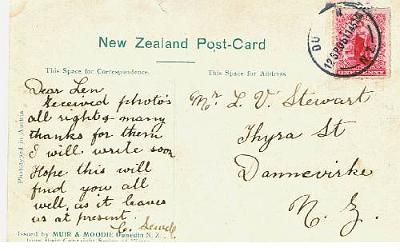 New Zealand Post-Card
This Space for Correspondence.
This Space for Address
Dear Len
Received photo's
all right & many
thanks for them
I will write soon
Hope this will
find you all
well, as it leaves
us at present.
Mr L. V. Stewart
Thyra St
Dannevirke
N. Z.
ONE PENNY
N.Z.
Issued by MUIR & MOODIE Dunedin N. Z.
from their Copyright Series of